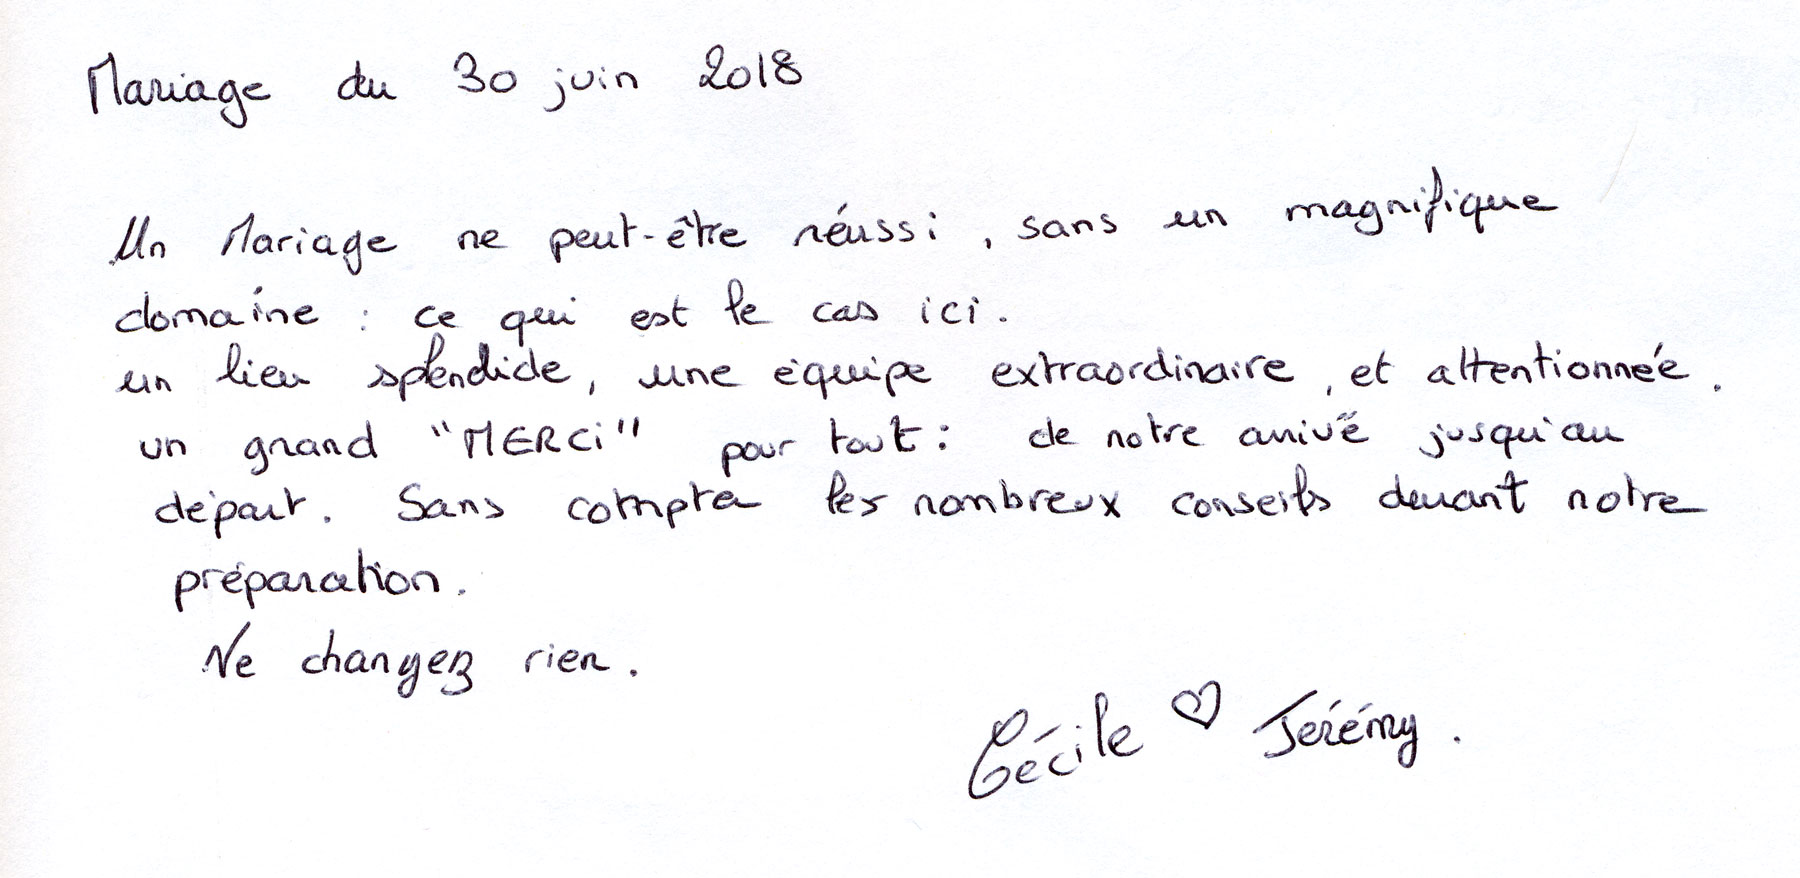 Mariage du 30 juin 2018
Un Mariage ne peut-être réussi, sans un magnifique
domaine : ce qui est le cas ici.
un lieu splendide, une équipe extraordinaire, et attentionnée.
un grand "MERCi" pour tout : de notre arrivé jusqu'au
départ. Sans compter les nombreux conseils devant notre
préparation.
Ne changez rien.
Cécile ♡ Jérémy.